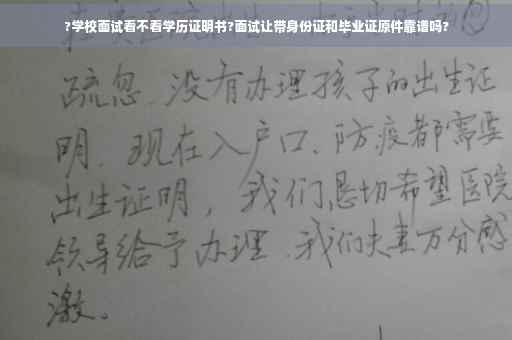 ?学校面试看不看学历证明书?面试让带身份证和毕业证原件靠谱吗?
疏忽、没有办理孩子的出生证
明.现在入户口、防疫都需要
出生证明，我们恳切希望医院
领导给予办理.我们夫妻万分感
激。